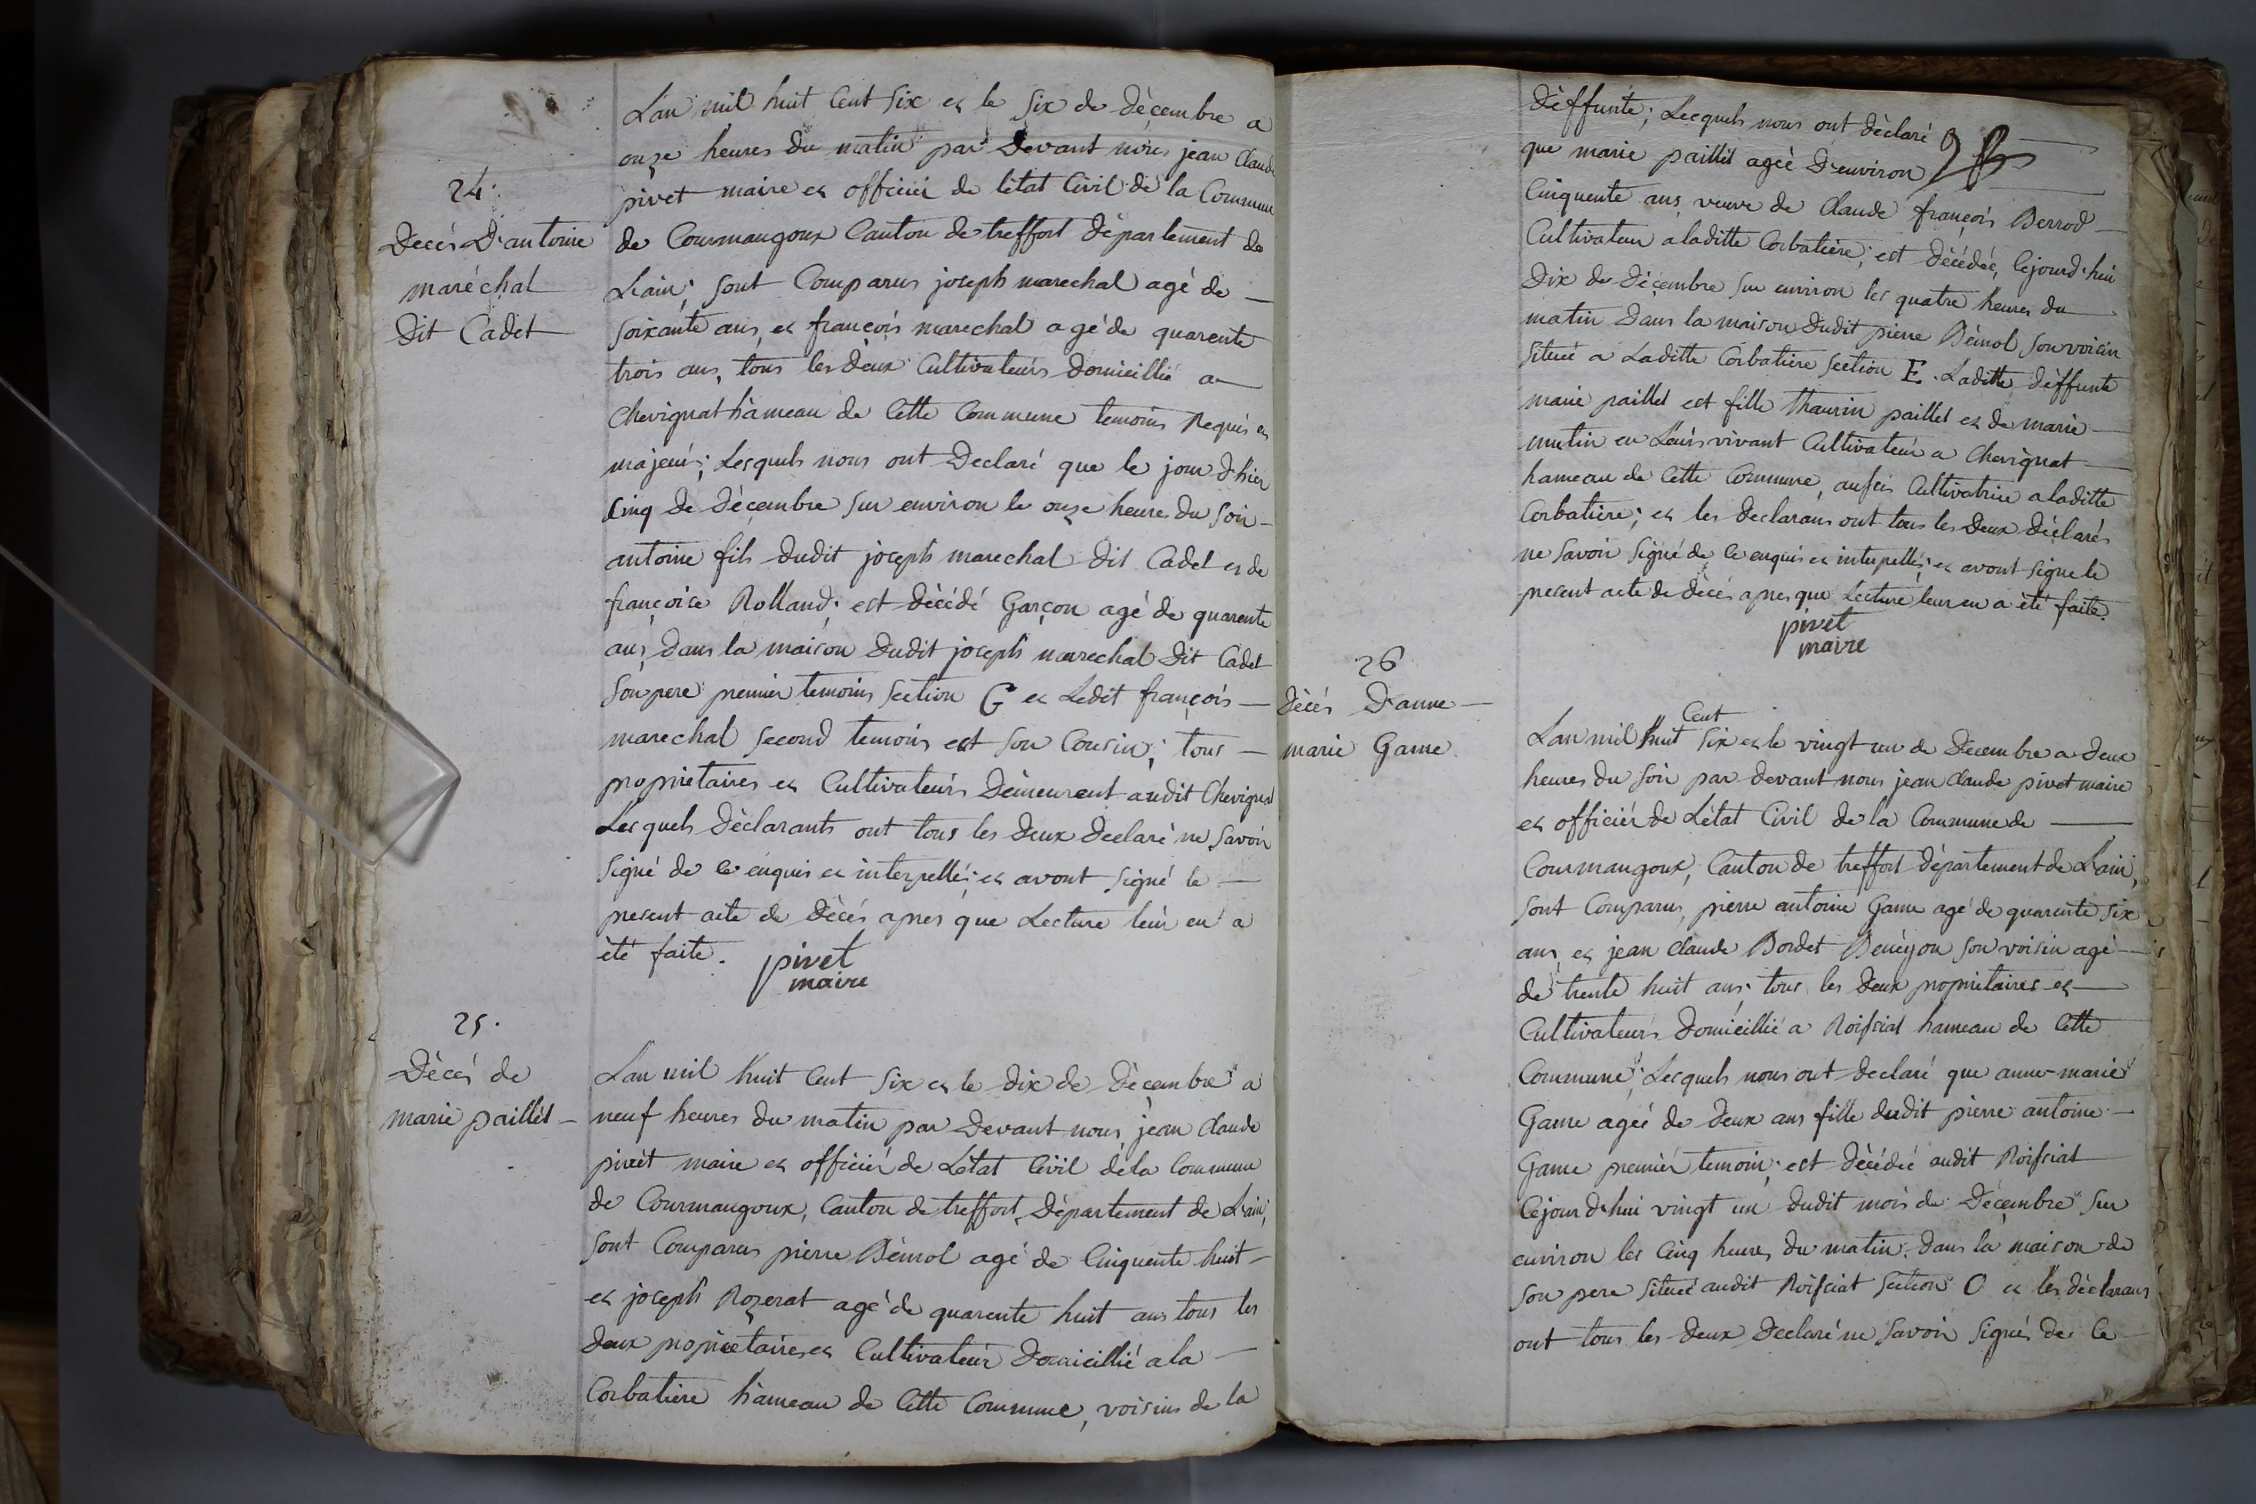 24.
Decés D'antoine
maréchal
Dit Cadet
L'an mil huit Cent Six et le Six de dècembre a
onze heures du matin par Devant nous jean Claude
pivet maire et officiér de létat Civil de la Commune
de Courmangoux Canton de treffort Département de
L'ain; sont Comparus joseph marechal agé de —
soixante ans, et françois marechal agé de quarente
trois ans, tous les deux Cultivateurs domicillié a —
Chevignat hâmeau de Cette Commune temoins Requis et
majeurs; Lesquels nous ont Declaré que le jour d'hier
Cinq de dècembre sur environ le onze heures du soir —
antoine fils dudit joseph marechal dit Cadet et de
françoise Rolland; est dècédé Garçon agé de quarente
ans, dans la maison dudit joseph marechal dit Cadet
son pere premier temoins section G et Ledit françois —
marechal second temoins est son Cousin; tous —
propriétaires et Cultivateurs Dèmeurent audit Chevignat
Lesquels dèclarants ont tous les deux declaré ne savoir
signé de ce enquis et interpellés; et avont signé le —
present acte de dècès apres que Lecture leur en a
èté faite.
pivet
maire
25.
Dècés de
marie paillet —
L'an mil huit Cent six et le dix de dècembre a
neuf heures du matin par Devant nous jean Claude
pivet maire et officiér de L'état Civil de la Commune
de Courmangoux, Canton de treffort, Département de L'ain,
sont Comparus pierre Bémol agé de Cinquente huit —
et joseph Rozerat agé de quarente huit ans tous les
deux propriétaires et Cultivateur domicillié a la —
Corbatiere hâmeau de Cette Commune, voisins de la
dèffunte; Lesquels nous ont dèclaré
que marie paillet ageé d'environ
Cinquente ans, veuve de Claude françois Berrod —
Cultivateur a laditte Corbatiere; est dècédée, Cejourd'hui
dix de dècembre sur environ les quatre heures du
matin dans la maison dudit pierre Bémol son voisin
situeé a Laditte Corbatiere section E. Laditte dèffunte
marie paillet est fille thaurin paillet et de marie —
mutin en Leurs vivant Cultivateur a Chevignat —
hameau de Cette Commune, aussi Cultivatrice a laditte
Corbatiere; et les declarans ont tous les Deux dèclarés
ne savoir signé de ce enquis et interpellés; et avont signe le
present acte de dècés apres que Lecture leur en a èté faite.
pivet
maire
26
Dècés D'anne —
marie Game
L'an mil huit Cent six et le vingt un de Decembre a deux
heures du soir par devant nous jean Claude pivet maire
et officiér de L'état Civil de la Commune de —
Courmangoux, Canton de treffort département de L'ain,
sont Comparus, pierre antoine Game agé de quarente six
ans, et jean Claude Bordet Benéyon son voisin agé —
de trente huit ans; tous les deux propriétaires et —
Cultivateurs domicillié a Roissiat hameau de Cette
Commune; Lesquels nous ont declaré que anne-marie
Game ageé de deux ans fille dudit pierre antoine —
Game premier temoin; est dècédeé audit Roissiat
Cejourd'hui vingt un dudit mois de Decembre sur
environ les Cinq heures du matin, dans la maison de
son pere situeé audit Roissiat section O et les dèclarans
ont tous les deux declaré ne savoir signés de ce —